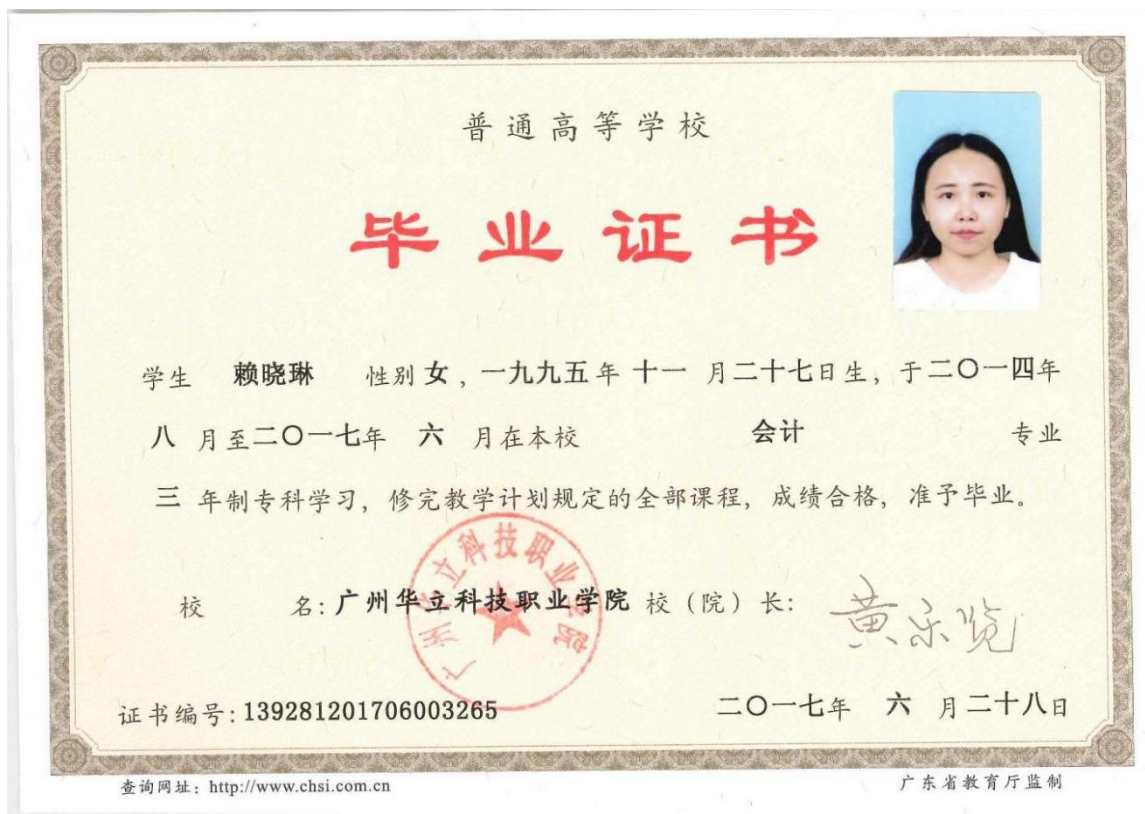 普通高等学校
毕业证书
学生 赖晓琳 性别 女，一九九五年 十一 月二十七日生，于二〇一四年
八 月至二〇一七年 六 月在本校 会计 专业
三 年制专科学习，修完教学计划规定的全部课程，成绩合格，准予毕业。
广州华立科技职业学院
校 名：广州华立科技职业学院 校（院）长：黄乐览
证书编号：139281201706003265 二〇一七年 六 月二十八日
查询网址：http://www.chsi.com.cn 广东省教育厅监制